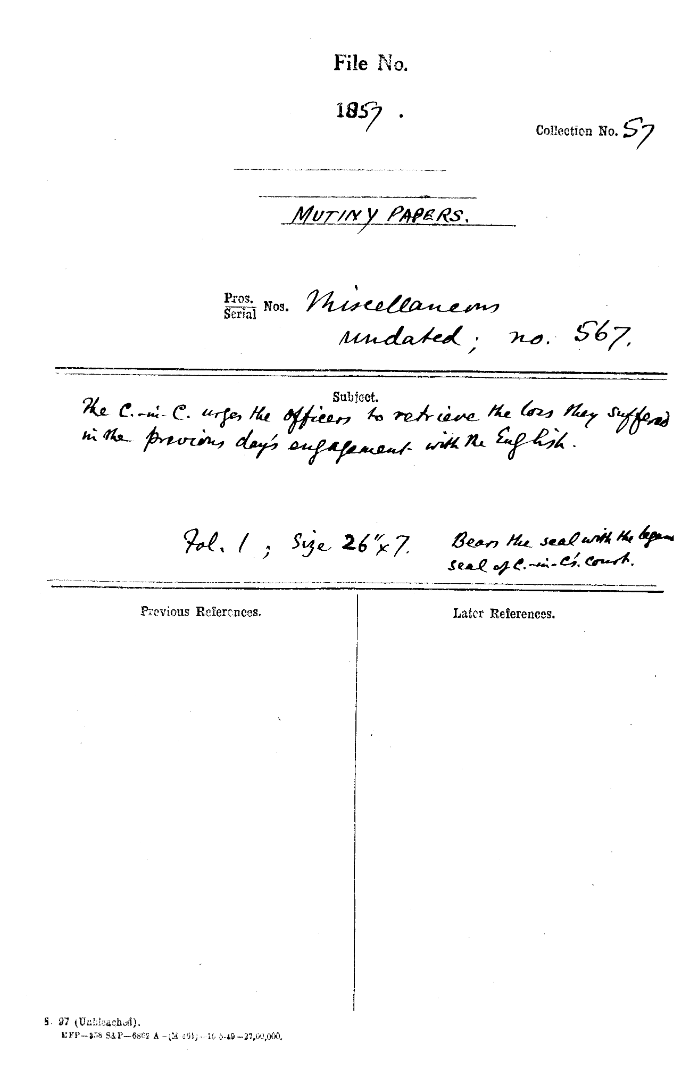 File No.
1857.
Collection No. 57
MUTINY PAPERS.
Pros.
Serial Nos. Miscellaneous
undated; no. 567.
Subject.
The C.-in-C. urges the officers to retrieve the loss they suffered
in the previous day's engagement with the English.
Fol. 1; Size 26"x7. Bears the seal with the
seal of C.-in-C's. Court.
Previous References.
Later References.
S. 97 (Unbleached).
MFP—